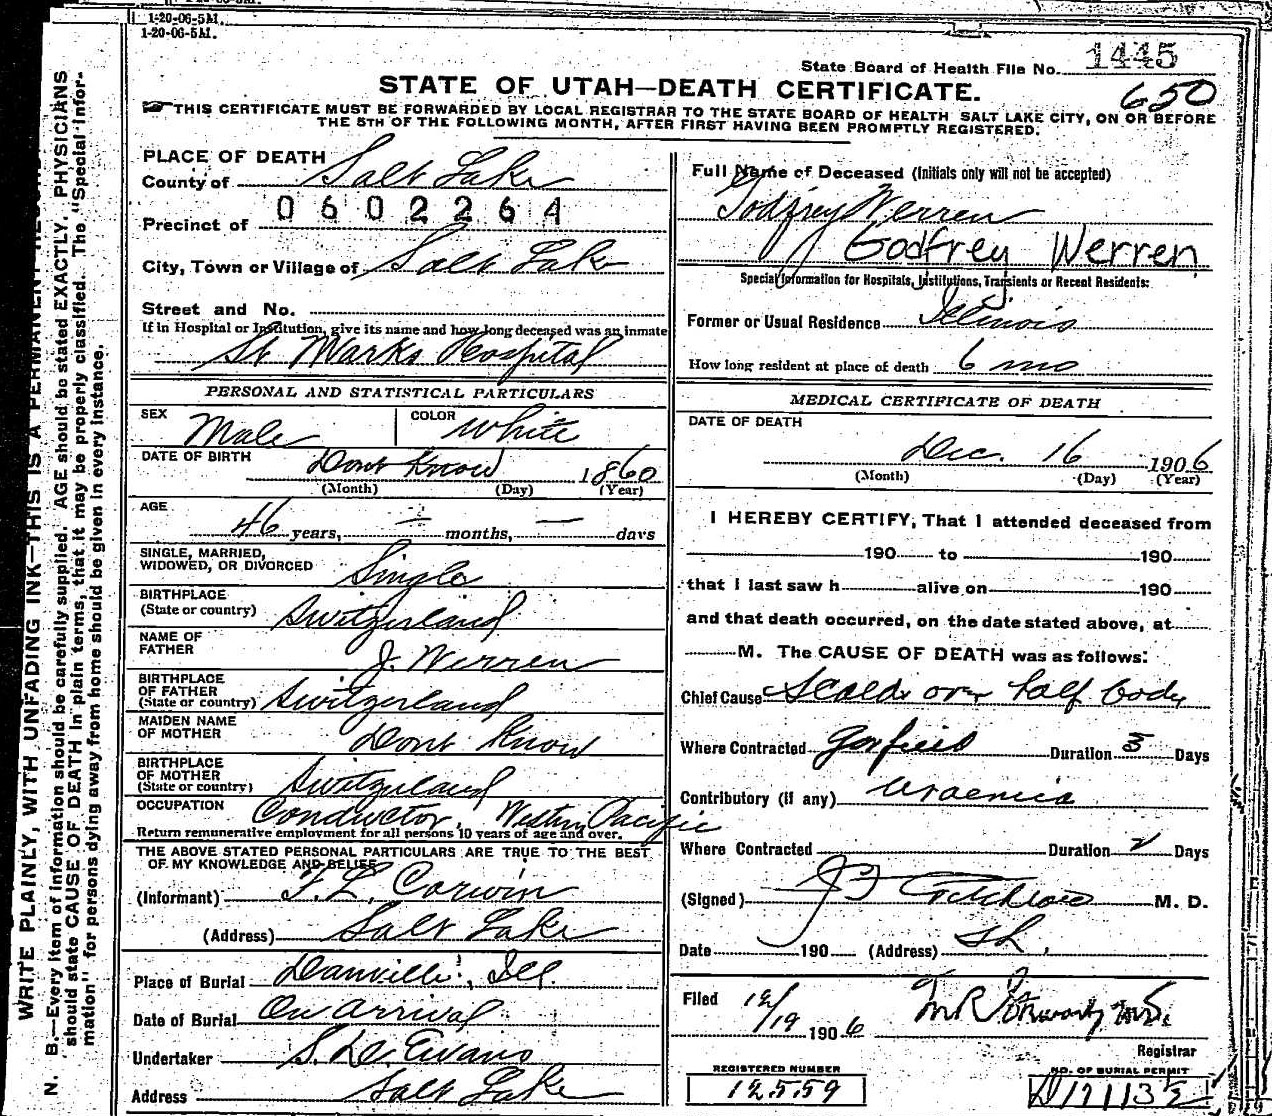 1-20-06-5M.
1-20-06-5M.
State Board of Health File No. 1445
STATE OF UTAH—DEATH CERTIFICATE.
650
THIS CERTIFICATE MUST BE FORWARDED BY LOCAL REGISTRAR TO THE STATE BOARD OF HEALTH SALT LAKE CITY, ON OR BEFORE
THE 5TH OF THE FOLLOWING MONTH, AFTER FIRST HAVING BEEN PROMPTLY REGISTERED.
PLACE OF DEATH
County of Salt Lake
0602264
Precinct of
City, Town or Village of Salt Lake
Street and No.
If in Hospital or Institution, give its name and how long deceased was an inmate
St Marks Hospital
PERSONAL AND STATISTICAL PARTICULARS
SEX Male COLOR White
DATE OF BIRTH Dont Know 1860
(Month) (Day) (Year)
AGE
46 years, — months, — days
SINGLE, MARRIED,
WIDOWED, OR DIVORCED Single
BIRTHPLACE
(State or country) Switzerland
NAME OF
FATHER J. Werren
BIRTHPLACE
OF FATHER
(State or country) Switzerland
MAIDEN NAME
OF MOTHER Dont Know
BIRTHPLACE
OF MOTHER
(State or country) Switzerland
OCCUPATION Conductor, Western Pacific
Return remunerative employment for all persons 10 years of age and over.
THE ABOVE STATED PERSONAL PARTICULARS ARE TRUE TO THE BEST
OF MY KNOWLEDGE AND BELIEF
(Informant) F. L. Corwin
(Address) Salt Lake
Place of Burial Danville, Ill.
Date of Burial On arrival
Undertaker S. D. Evans
Address Salt Lake
Full Name of Deceased (Initials only will not be accepted)
Godfrey Werren
Godfrey Werren
Special Information for Hospitals, Institutions, Transients or Recent Residents:
Former or Usual Residence Illinois
How long resident at place of death 6 mo
MEDICAL CERTIFICATE OF DEATH
DATE OF DEATH
Dec. 16 1906
(Month) (Day) (Year)
I HEREBY CERTIFY, That I attended deceased from
190 to 190
that I last saw h alive on 190
and that death occurred, on the date stated above, at
M. The CAUSE OF DEATH was as follows:
Chief Cause Scalds over half body
Where Contracted Garfield Duration 3 Days
Contributory (if any) Uraemia
Where Contracted Duration 2 Days
(Signed) M. D.
Date 190 (Address) SL.
Filed 12/19 1906
Registrar
REGISTERED NUMBER
12559
NO. OF BURIAL PERMIT
WRITE PLAINLY, WITH UNFADING INK—THIS IS A PERMANENT
N. B.—Every item of information should be carefully supplied. AGE should be stated EXACTLY. PHYSICIANS
should state CAUSE OF DEATH in plain terms, that it may be properly classified. The "Special Infor-
mation" for persons dying away from home should be given in every instance.